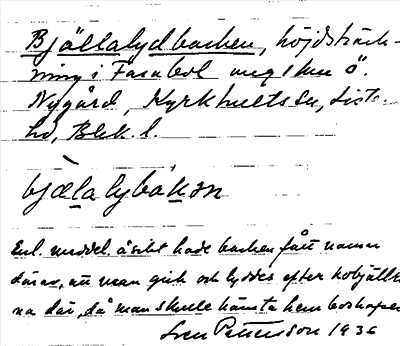 Bjällalydbacken, höjdsträck-
ning i Farabol ung 1 km ö.
Nygård, Kyrkhults sn, Liste-
hd, Blek. l.
bjælalybakən
Enl. meddel. åsikt hade backen fått namn
därav, att man gick och lyddes efter kobjällror-
na där, då man skulle hämta hem boskapen
Sven Petersson 1936